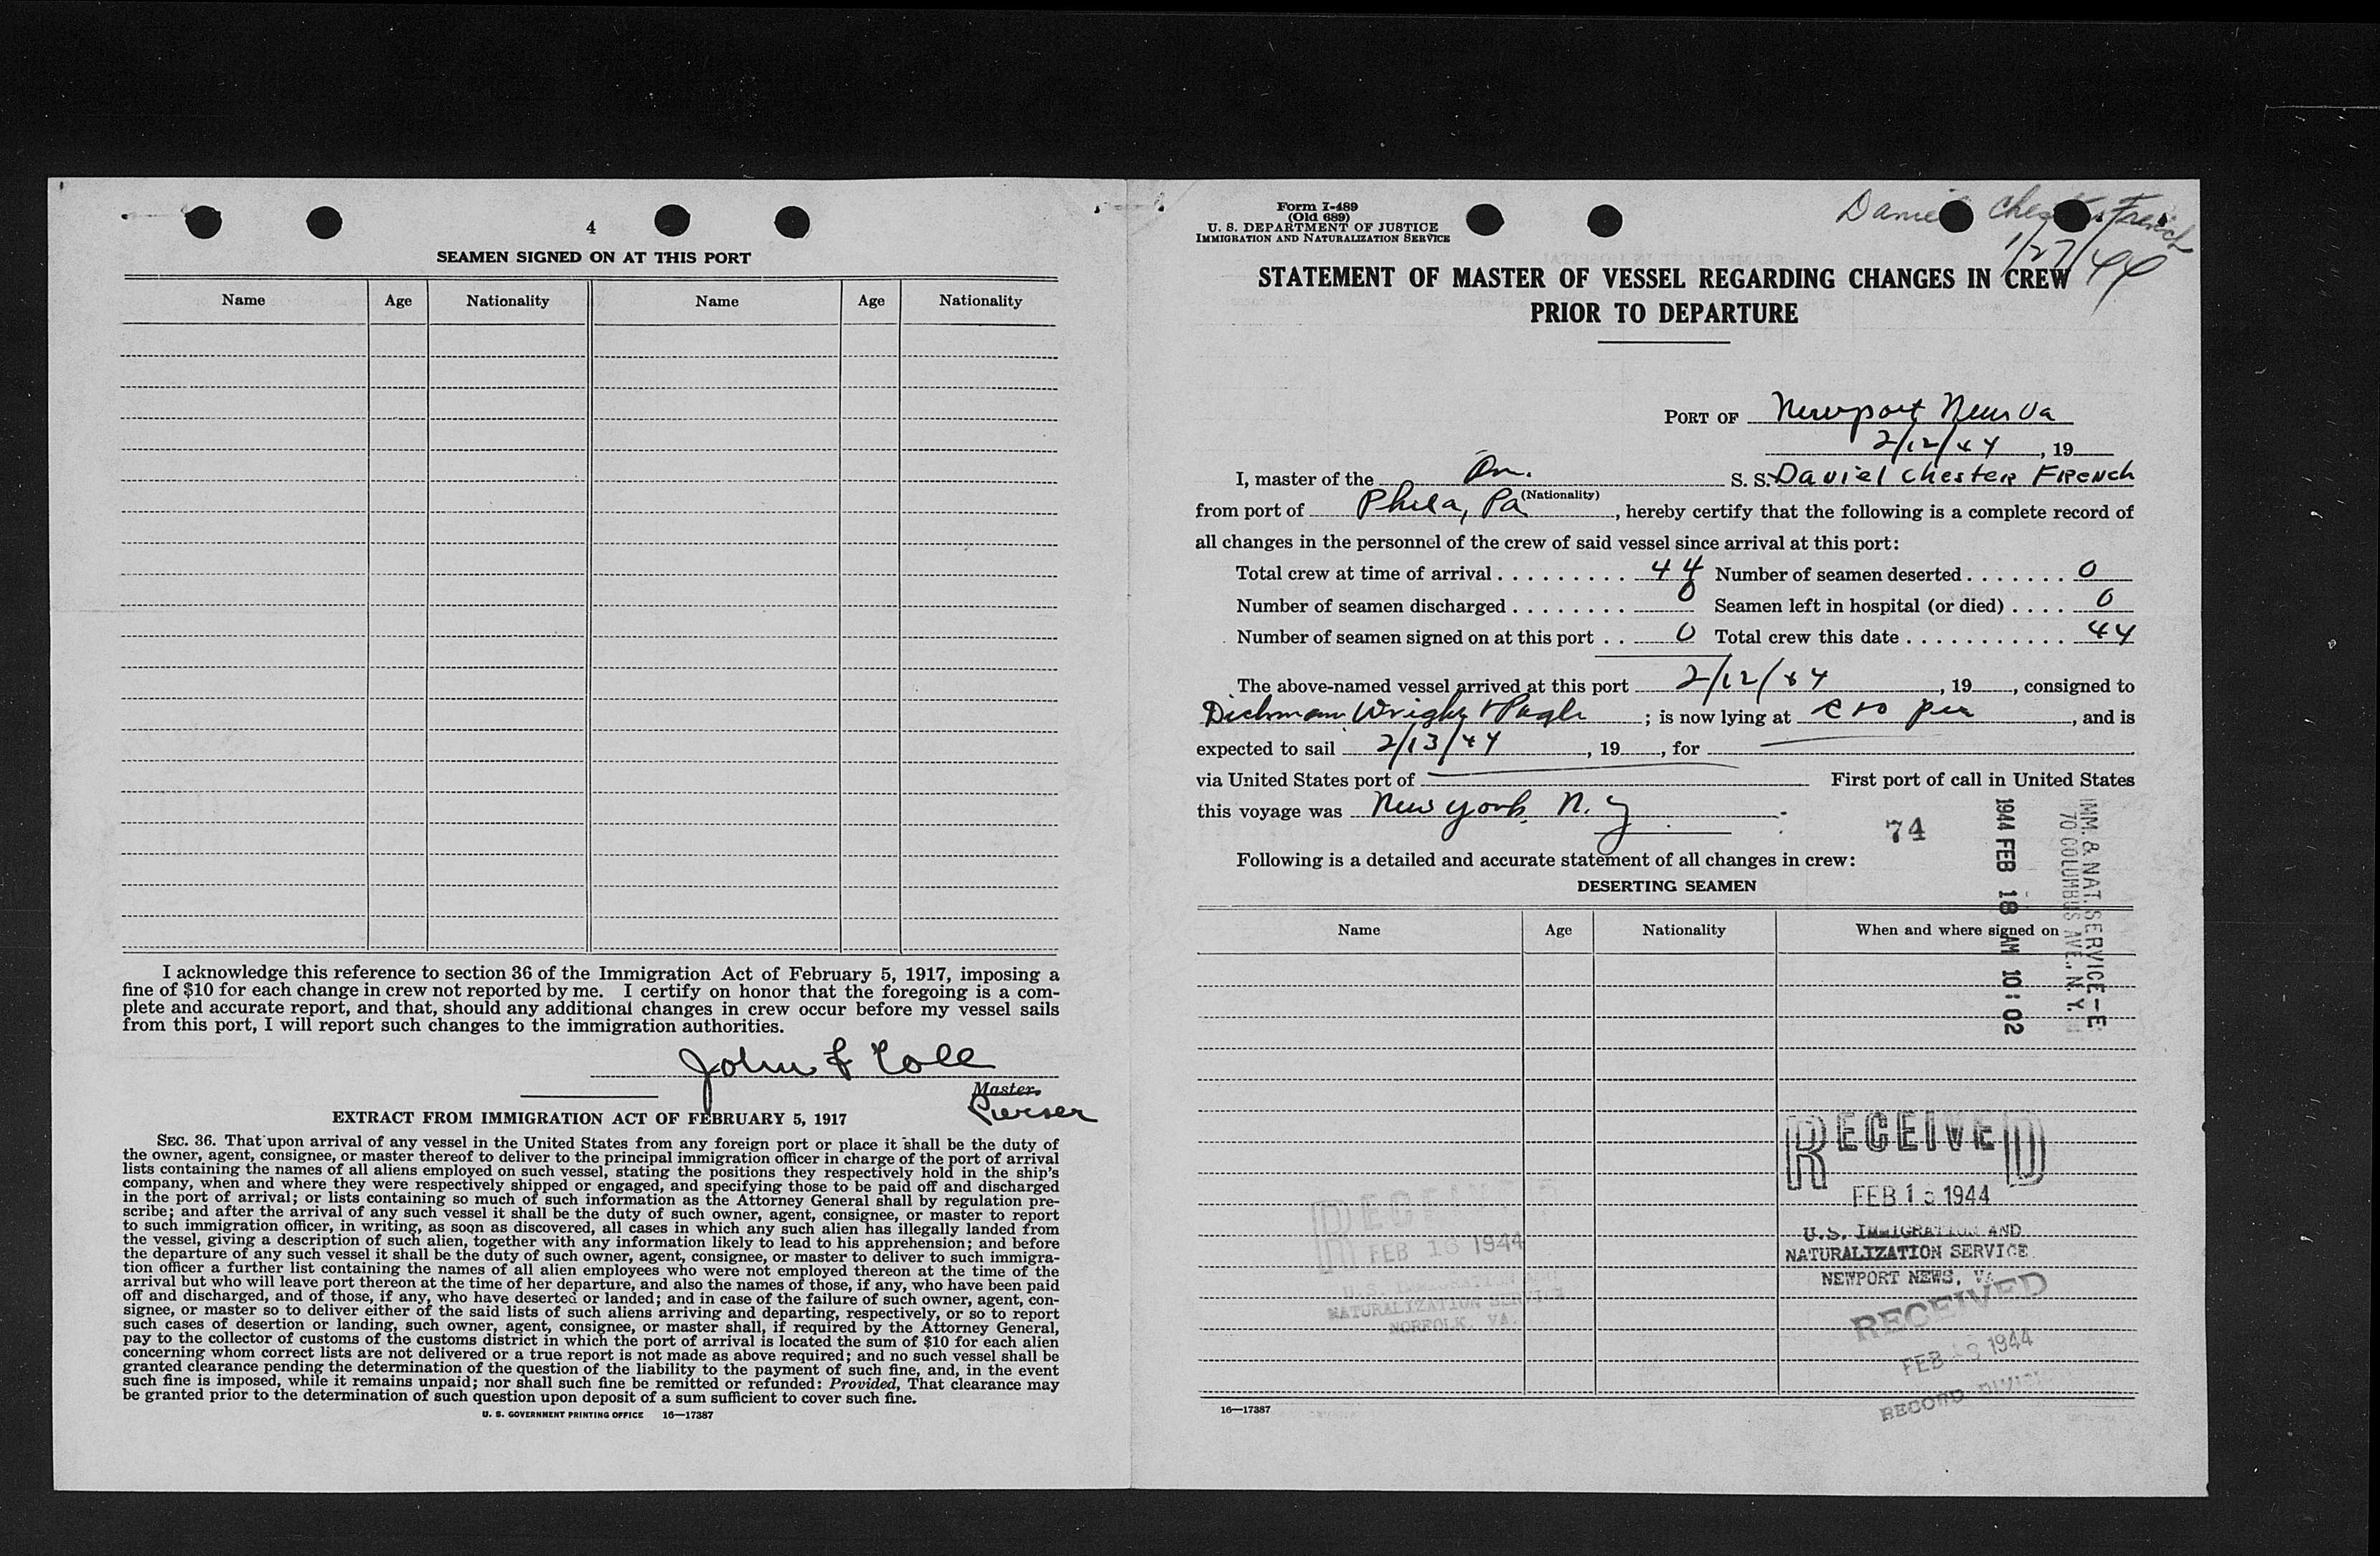 4
SEAMEN SIGNED ON AT THIS PORT
Name Age Nationality Name Age Nationality
I acknowledge this reference to section 36 of the Immigration Act of February 5, 1917, imposing a
fine of $10 for each change in crew not reported by me. I certify on honor that the foregoing is a com-
plete and accurate report, and that, should any additional changes in crew occur before my vessel sails
from this port, I will report such changes to the immigration authorities.
John F Cole
Master.
Purser
EXTRACT FROM IMMIGRATION ACT OF FEBRUARY 5, 1917
SEC. 36. That upon arrival of any vessel in the United States from any foreign port or place it shall be the duty of
the owner, agent, consignee, or master thereof to deliver to the principal immigration officer in charge of the port of arrival
lists containing the names of all aliens employed on such vessel, stating the positions they respectively hold in the ship's
company, when and where they were respectively shipped or engaged, and specifying those to be paid off and discharged
in the port of arrival; or lists containing so much of such information as the Attorney General shall by regulation pre-
scribe; and after the arrival of any such vessel it shall be the duty of such owner, agent, consignee, or master to report
to such immigration officer, in writing, as soon as discovered, all cases in which any such alien has illegally landed from
the vessel, giving a description of such alien, together with any information likely to lead to his apprehension; and before
the departure of any such vessel it shall be the duty of such owner, agent, consignee, or master to deliver to such immigra-
tion officer a further list containing the names of all alien employees who were not employed thereon at the time of the
arrival but who will leave port thereon at the time of her departure, and also the names of those, if any, who have been paid
off and discharged, and of those, if any, who have deserted or landed; and in case of the failure of such owner, agent, con-
signee, or master so to deliver either of the said lists of such aliens arriving and departing, respectively, or so to report
such cases of desertion or landing, such owner, agent, consignee, or master shall, if required by the Attorney General,
pay to the collector of customs of the customs district in which the port of arrival is located the sum of $10 for each alien
concerning whom correct lists are not delivered or a true report is not made as above required; and no such vessel shall be
granted clearance pending the determination of the question of the liability to the payment of such fine, and, in the event
such fine is imposed, while it remains unpaid; nor shall such fine be remitted or refunded: Provided, That clearance may
be granted prior to the determination of such question upon deposit of a sum sufficient to cover such fine.
U. S. GOVERNMENT PRINTING OFFICE 16—17387
Form I-489
(Old 689)
U. S. DEPARTMENT OF JUSTICE
IMMIGRATION AND NATURALIZATION SERVICE
Daniel Chester French
1/27/44
STATEMENT OF MASTER OF VESSEL REGARDING CHANGES IN CREW
PRIOR TO DEPARTURE
PORT OF Newport News Va
2/12/44, 19
I, master of the Am. S. S. Daniel Chester French
(Nationality)
from port of Phila, Pa, hereby certify that the following is a complete record of
all changes in the personnel of the crew of said vessel since arrival at this port:
Total crew at time of arrival 44 Number of seamen deserted 0
Number of seamen discharged 0 Seamen left in hospital (or died) 0
Number of seamen signed on at this port 0 Total crew this date 44
The above-named vessel arrived at this port 2/12/44, 19, consigned to
Dichmann Wright & Pugh; is now lying at C&O pier, and is
expected to sail 2/13/44, 19, for
via United States port of First port of call in United States
this voyage was New York, N. Y
74
Following is a detailed and accurate statement of all changes in crew:
DESERTING SEAMEN
Name Age Nationality When and where signed on
1944 FEB 18 AM 10:02
IMM. & NAT. SERVICE-E
70 COLUMBUS AVE., N. Y.
RECEIVED
FEB 1 1944
U.S. IMMIGRATION AND
NATURALIZATION SERVICE
NEWPORT NEWS, VA.
RECEIVED
FEB 16 1944
U.S. IMMIGRATION AND
NATURALIZATION SERVICE
NORFOLK, VA.
RECEIVED
FEB 1944
RECORD DIVISION
16—17387